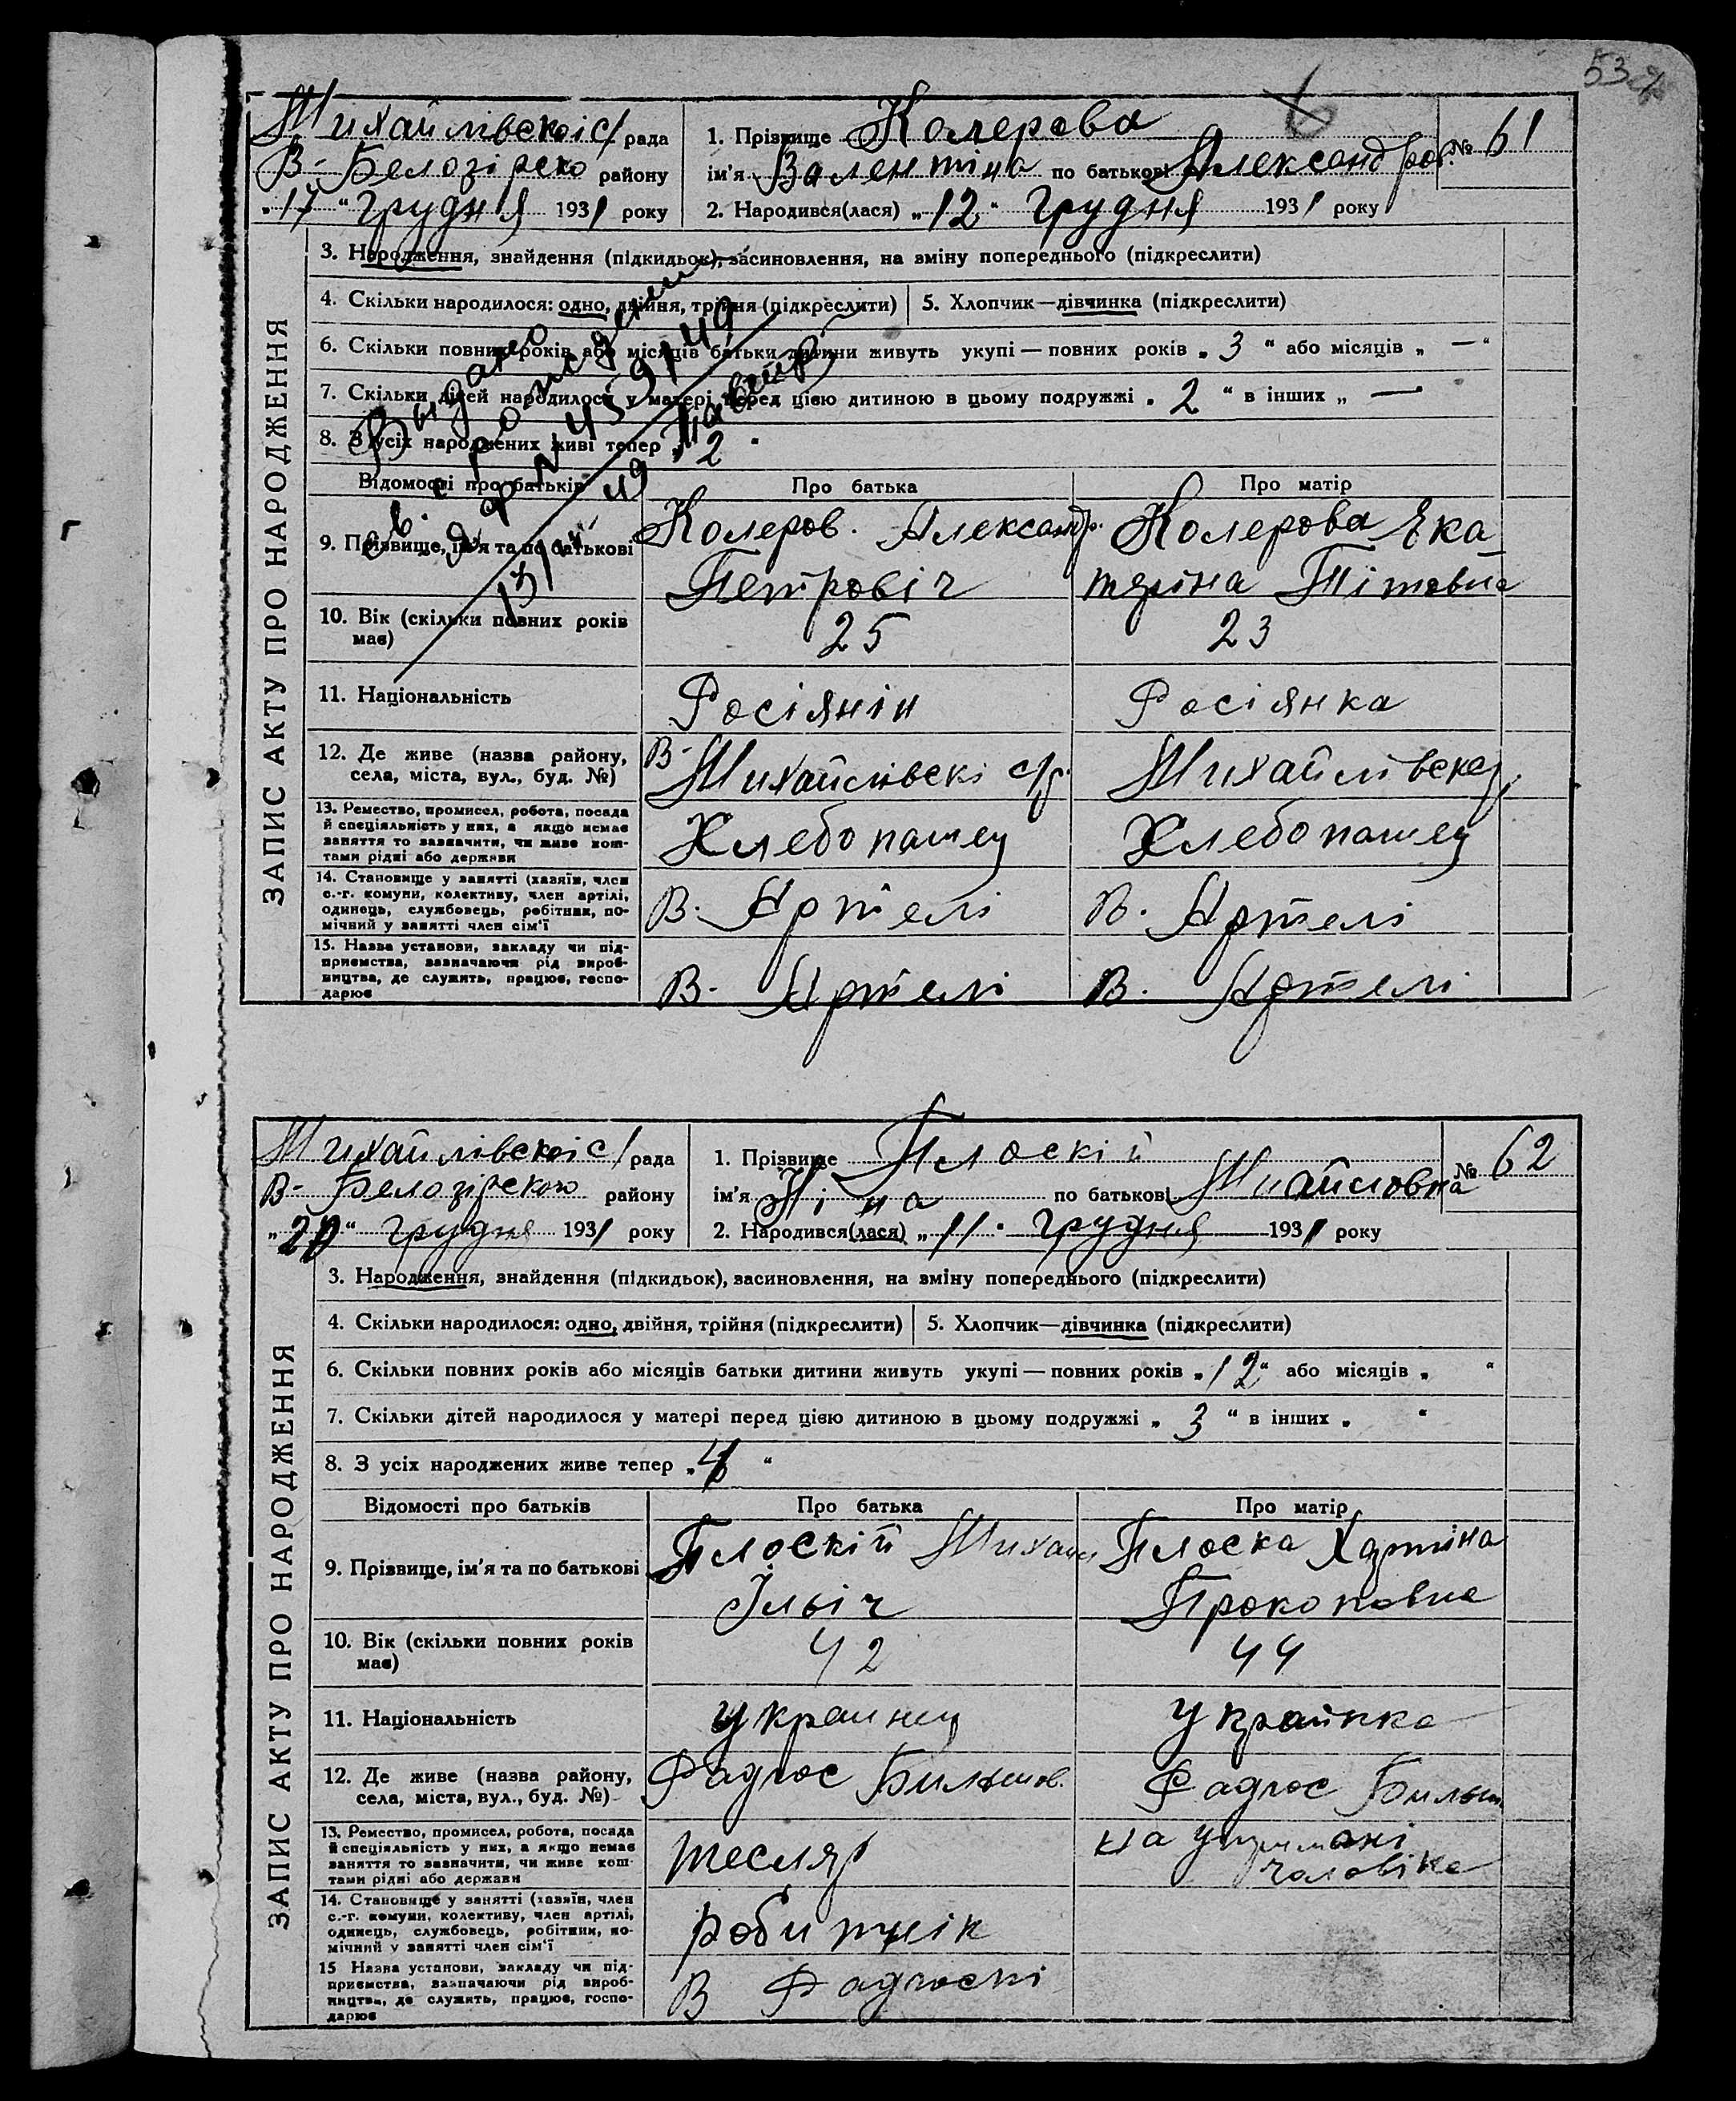 53
Михайлівскоі с/рада
В-Белозірско району
"17" Грудня 1931 року
1. Прізвище Колерова
ім'я Валентіна по батькові Александров.
2. Народився(лася) "12" Грудня 1931 року
№ 61
ЗАПИС АКТУ ПРО НАРОДЖЕННЯ
3. Народження, знайдення (підкидьок), засиновлення, на зміну попереднього (підкреслити)
4. Скільки народилося: одно, двійня, трійня (підкреслити)
5. Хлопчик—дівчинка (підкреслити)
6. Скільки повних років або місяців батьки дитини живуть укупі — повних років „3" або місяців „—"
7. Скільки дітей народилося у матері перед цією дитиною в цьому подружжі „2" в інших „—
8. З усіх народжених живі тепер „2"
Выдано
св. о рождении
459149
Відомості про батьків
Про батька
Про матір
9. Прізвище, ім'я та по батькові
Колеров. Александр.
Петровіч
Колерова Ека
теріна Тітовна
10. Вік (скільки повних років
має)
25
23
11. Національність
Росіянін
Росіянка
12. Де живе (назва району,
села, міста, вул., буд. №)
В-Михайлівскі с/р.
Михайлівска
13. Ремество, промисел, робота, посада
й спеціяльність у них, а якщо немає
заняття то зазначити, чи живе кош-
тами рідні або держави
Хлебопашец
Хлебопашец
14. Становище у занятті (хазяїн, член
с.-г. комуни, колективу, член артілі,
одинець, службовець, робітник, по-
мічний у занятті член сім'ї
В. Артелі
В. Артелі
15. Назва установи, закладу чи під-
приємства, зазначаючи рід вироб-
ництва, де служить, працює, госпо-
дарює
В. Артелі
В. Артелі
Михайлівскоі с/рада
В-Белозірского району
"20" грудня 1931 року
1. Прізвище Плоскій
ім'я Ніна по батькові Михайловна
2. Народився(лася) "11" грудня 1931 року
№ 62
ЗАПИС АКТУ ПРО НАРОДЖЕННЯ
3. Народження, знайдення (підкидьок), засиновлення, на зміну попереднього (підкреслити)
4. Скільки народилося: одно, двійня, трійня (підкреслити)
5. Хлопчик—дівчинка (підкреслити)
6. Скільки повних років або місяців батьки дитини живуть укупі — повних років „12" або місяців „ "
7. Скільки дітей народилося у матері перед цією дитиною в цьому подружжі „3" в інших „ "
8. З усіх народжених живе тепер „4"
Відомості про батьків
Про батька
Про матір
9. Прізвище, ім'я та по батькові
Плоскій Михаил
Ільіч
Плоска Хартіна
Прокоповна
10. Вік (скільки повних років
має)
42
44
11. Національність
Украинец
Украінка
12. Де живе (назва району,
села, міста, вул., буд. №)
Радгос Бильшов.
Радгос Бильш
13. Ремество, промисел, робота, посада
й спеціяльність у них, а якщо немає
заняття то зазначити, чи живе кош-
тами рідні або держави
тесляр
на утримані
чоловіка
14. Становище у занятті (хазяїн, член
с.-г. комуни, колективу, член артілі,
одинець, службовець, робітник, по-
мічний у занятті член сім'ї
робитнік
15 Назва установи, закладу чи під-
приємства, зазначаючи рід вироб-
ництва, де служить, працює, госпо-
дарює
В Радгоспі